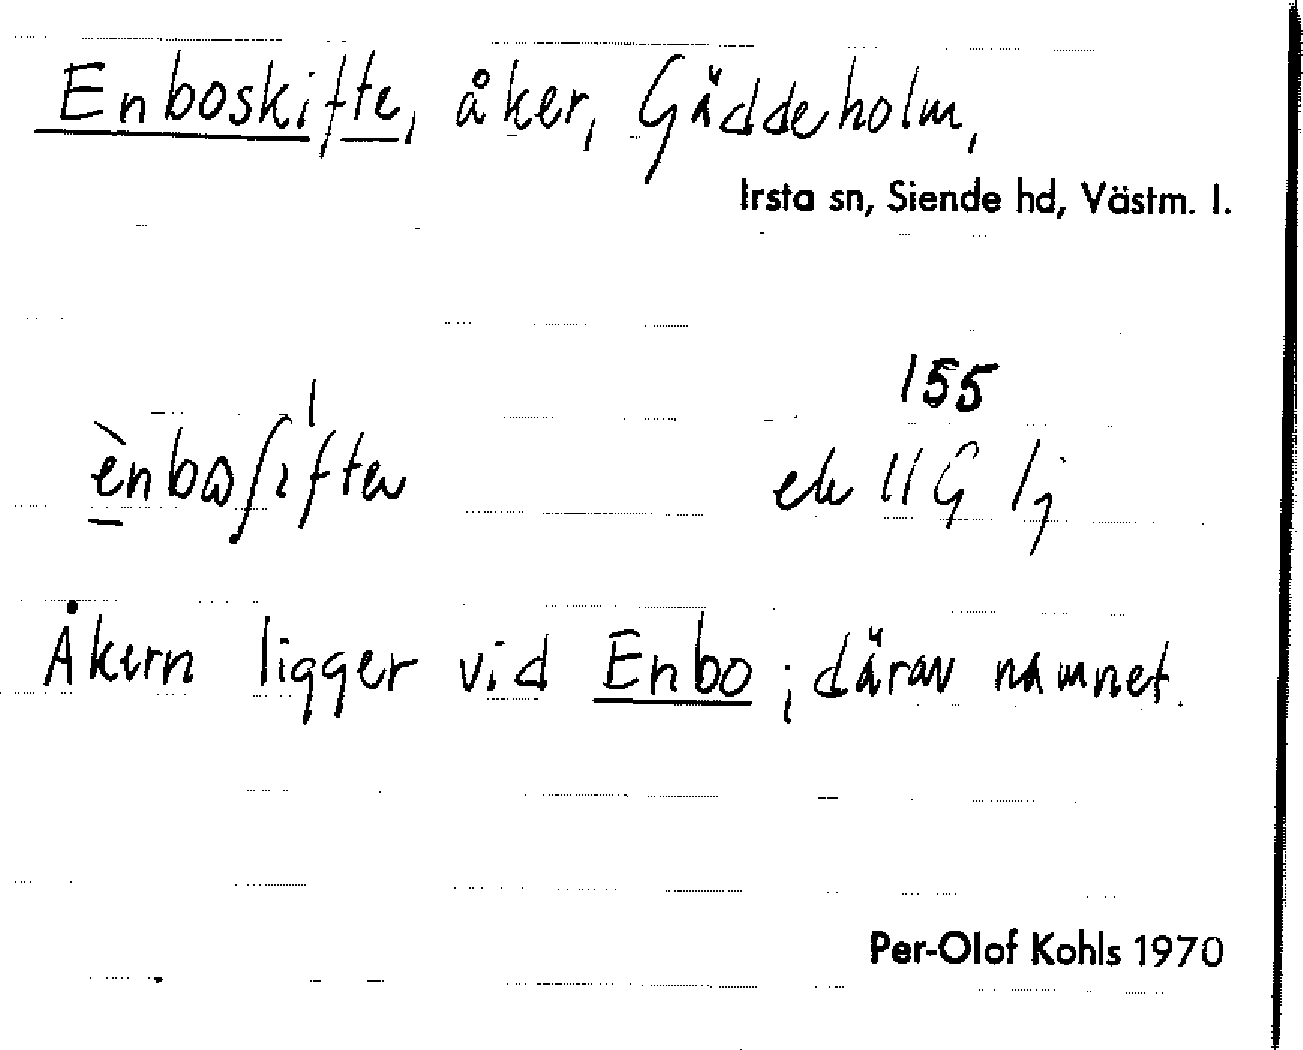 Enboskifte, åker, Gäddeholm,
Irsta sn, Siende hd, Västm. l.
155
ènboʃifter ek 11G 1j
Åkern ligger vid Enbo; därav namnet.
Per-Olof Kohls 1970